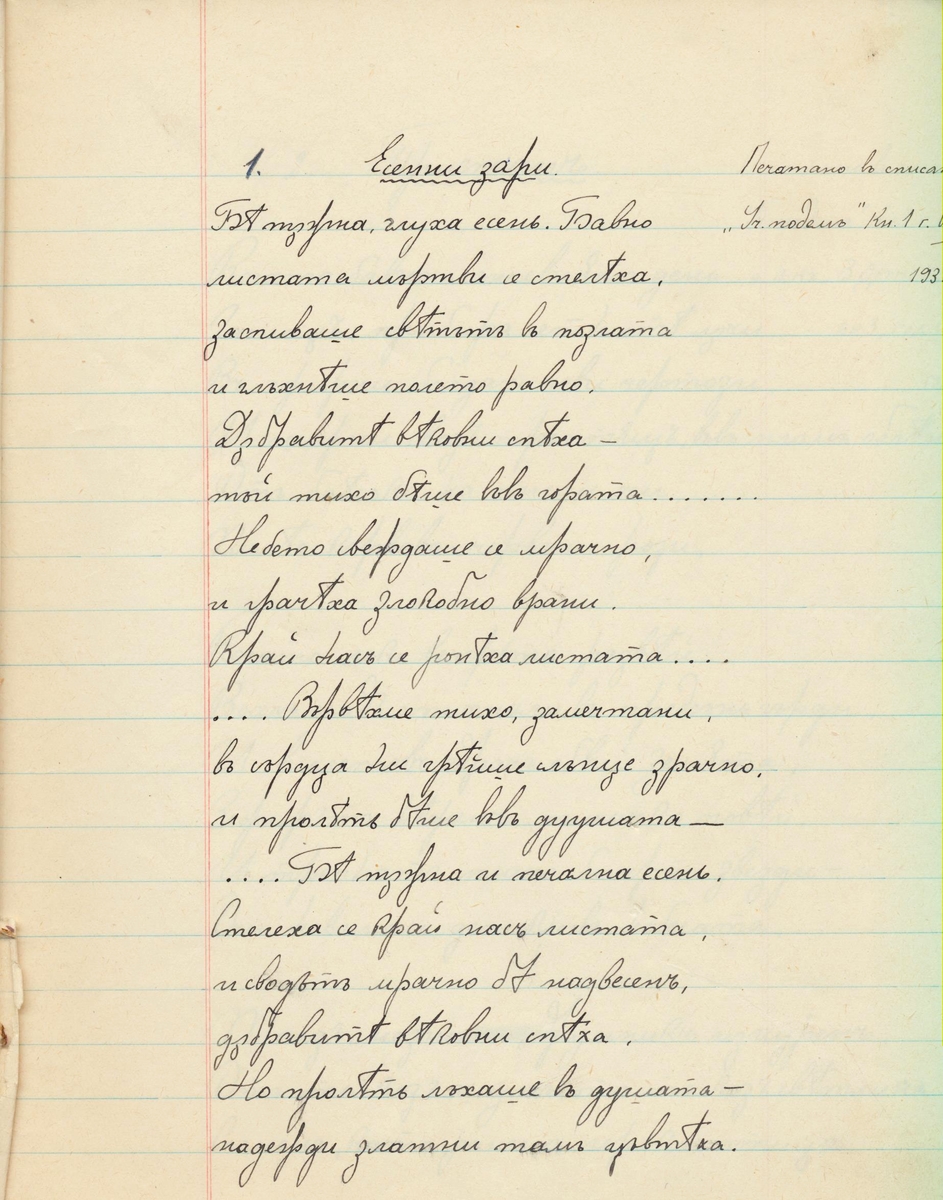 1. Есенни зари. Печатано въ списа
Бѣ тѫжна, глуха есень. Бавно „Уч. подемъ" Кн. 1 г.
листата мъртви се стелѣха, 193
заспиваше свѣтътъ въ позлата
и глъхнѣше полето равно.
Дѫбравитѣ вѣковни спѣха –
той тихо бѣше въвъ гората.......
Небето свеждаше се мрачно,
и грачѣха злокобно врани.
Край насъ се ронѣха листата....
.... Вървѣхме тихо, замечтани,
въ сърдца ни грѣйше слънце зрачно,
и пролѣть бѣше въвъ душата —
.... Бѣ тѫжна и печална есень.
Стелеха се край насъ листата,
и сводътъ мрачно бѣ надвесенъ,
дѫбравитѣ вѣковни спѣха.
Но пролѣть лъхаше въ душата –
надежди златни тамъ цъвтѣха.